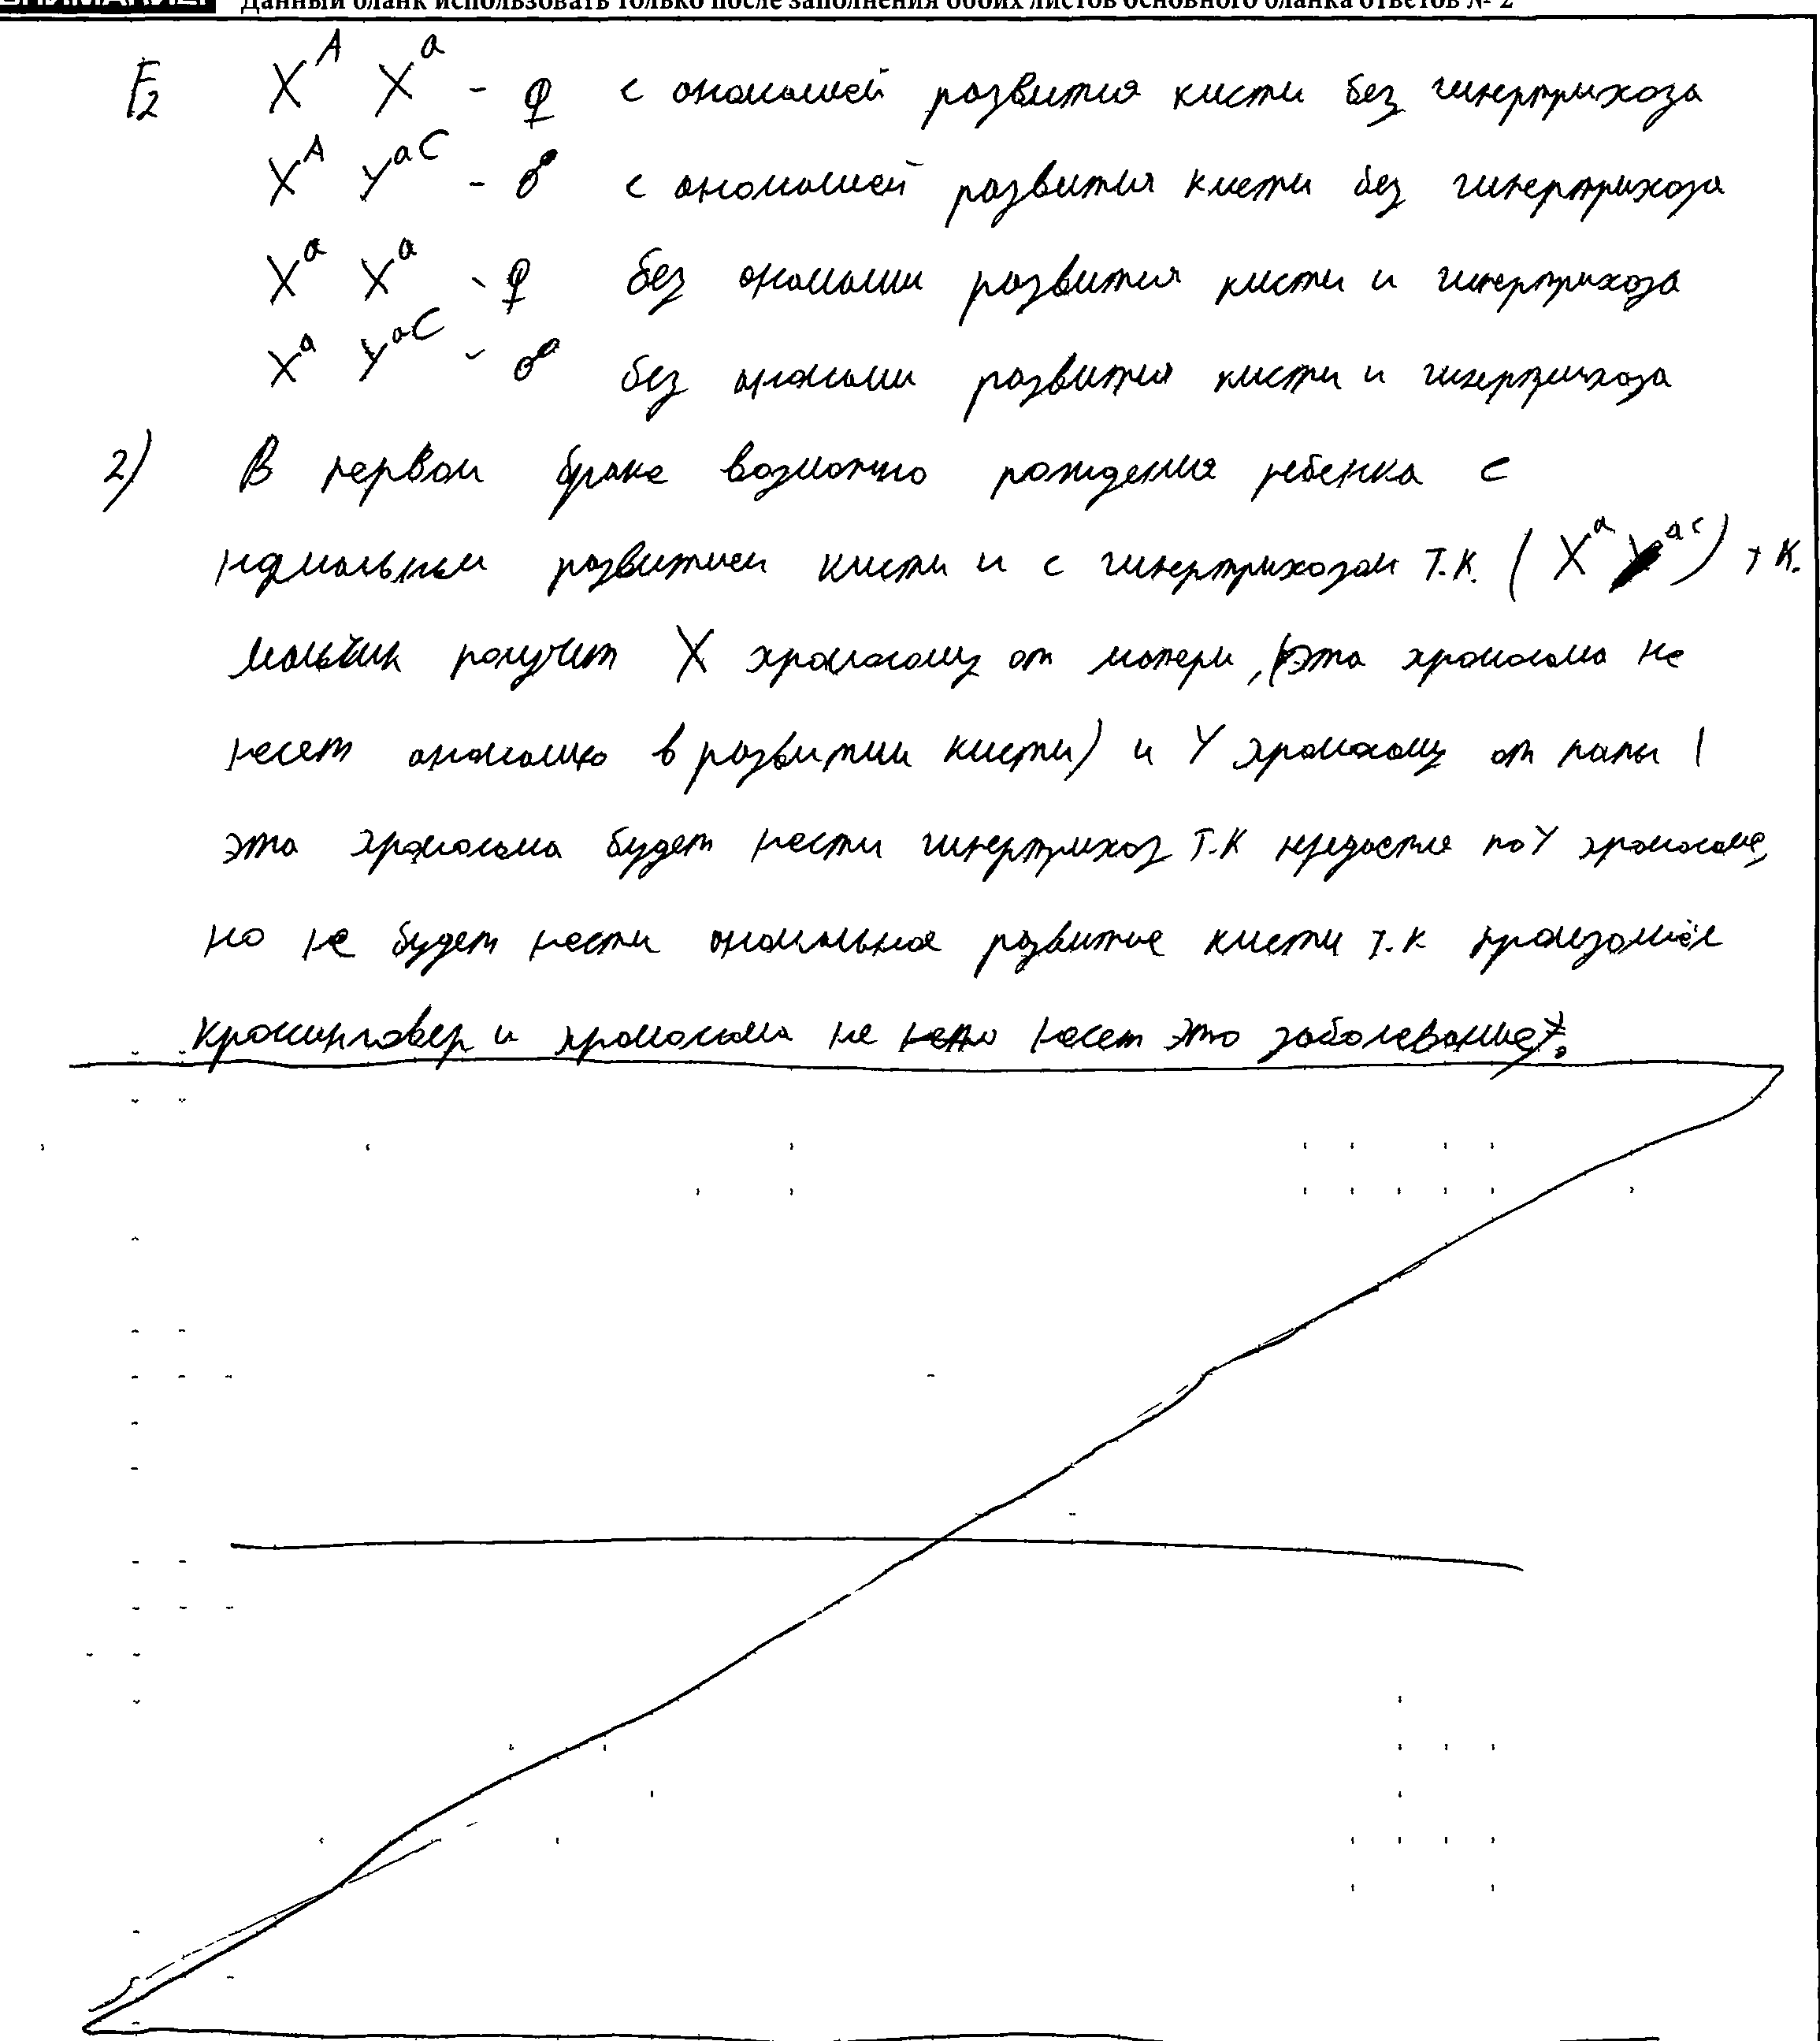 Данный бланк использовать только после заполнения обоих листов основного бланка ответов № 2
F2 X^A X^a - ♀ с аномалией развития кисти без гипертрихоза
X^A Y^aC - ♂ с аномалией развития кисти без гипертрихоза
X^a X^a - ♀ без аномалии развития кисти и гипертрихоза
X^a Y^aC - ♂ без аномалии развития кисти и гипертрихоза
2) В первом браке возможно рождения ребенка с
нормальным развитием кисти и с гипертрихозом т.к. (X^a Y^ac) т.к.
мальчик получит X хромосому от матери, (эта хромосома не
несет аномалию в развитии кисти) и Y хромосому от папы (
эта хромосома будет нести гипертрихоз т.к по Y хромосоме,
но не будет нести аномальное развитие кисти т.к произошёл
кроссинговер и хромосома не несет это заболевание).